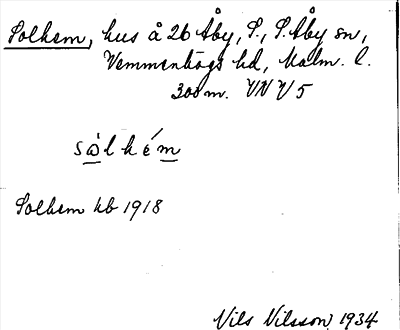 Solhem, hus å 26 Åby, S., S. Åby sn,
Vemmenhögs hd, Malm. l.
300 m. VNV 5
sòlhém
Solhem kb 1918
Nils Nilsson 1934